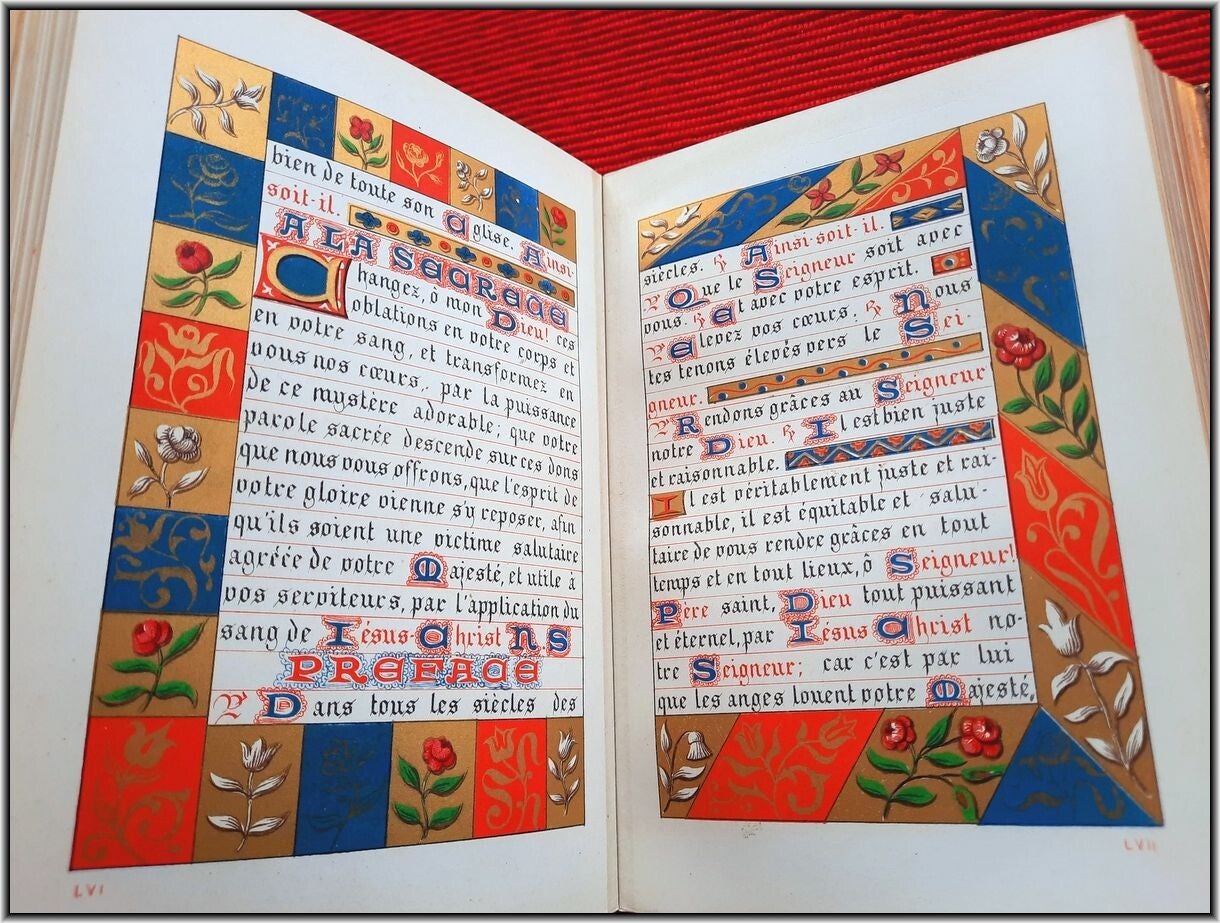 bien de toute son Eglise. Ainsi-
soit-il.
A LA SECRETE
Changez, ô mon Dieu! ces
oblations en votre corps et
en votre sang, et transformez en
vous nos cœurs, par la puissance
de ce mystère adorable; que votre
parole sacrée descende sur ces dons
que nous vous offrons, que l'esprit de
votre gloire vienne s'y reposer, afin
qu'ils soient une victime salutaire
agréée de votre Majesté, et utile à
vos serviteurs, par l'application du
sang de Jésus-Christ N.S
PREFACE
℣ Dans tous les siècles des
LVI
siècles. ℟ Ainsi-soit-il.
℣ Que le Seigneur soit avec
vous. ℟ Et avec votre esprit.
℣ Elevez vos cœurs. ℟ Nous
les tenons élevés vers le Sei-
gneur.
℣ Rendons grâces au Seigneur
notre Dieu. ℟ Il est bien juste
et raisonnable.
Il est véritablement juste et rai-
sonnable, il est équitable et salu-
taire de vous rendre grâces en tout
temps et en tout lieux, ô Seigneur!
Père saint, Dieu tout puissant
et éternel, par Jésus Christ no-
tre Seigneur; car c'est par lui
que les anges louent votre Majesté,
LVII